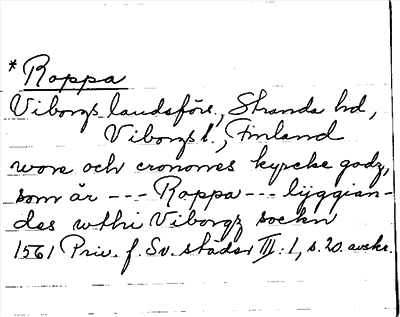 * Roppa
Viborgs landsförs., Stranda hd,
Viborgs l., Finland
wore och cronones kypcke godz,
som är --- Roppa --- liggian-
des wthi Viborgz sockn
1561 Priv. f. Sv. städer III:1, s. 20. avskr.